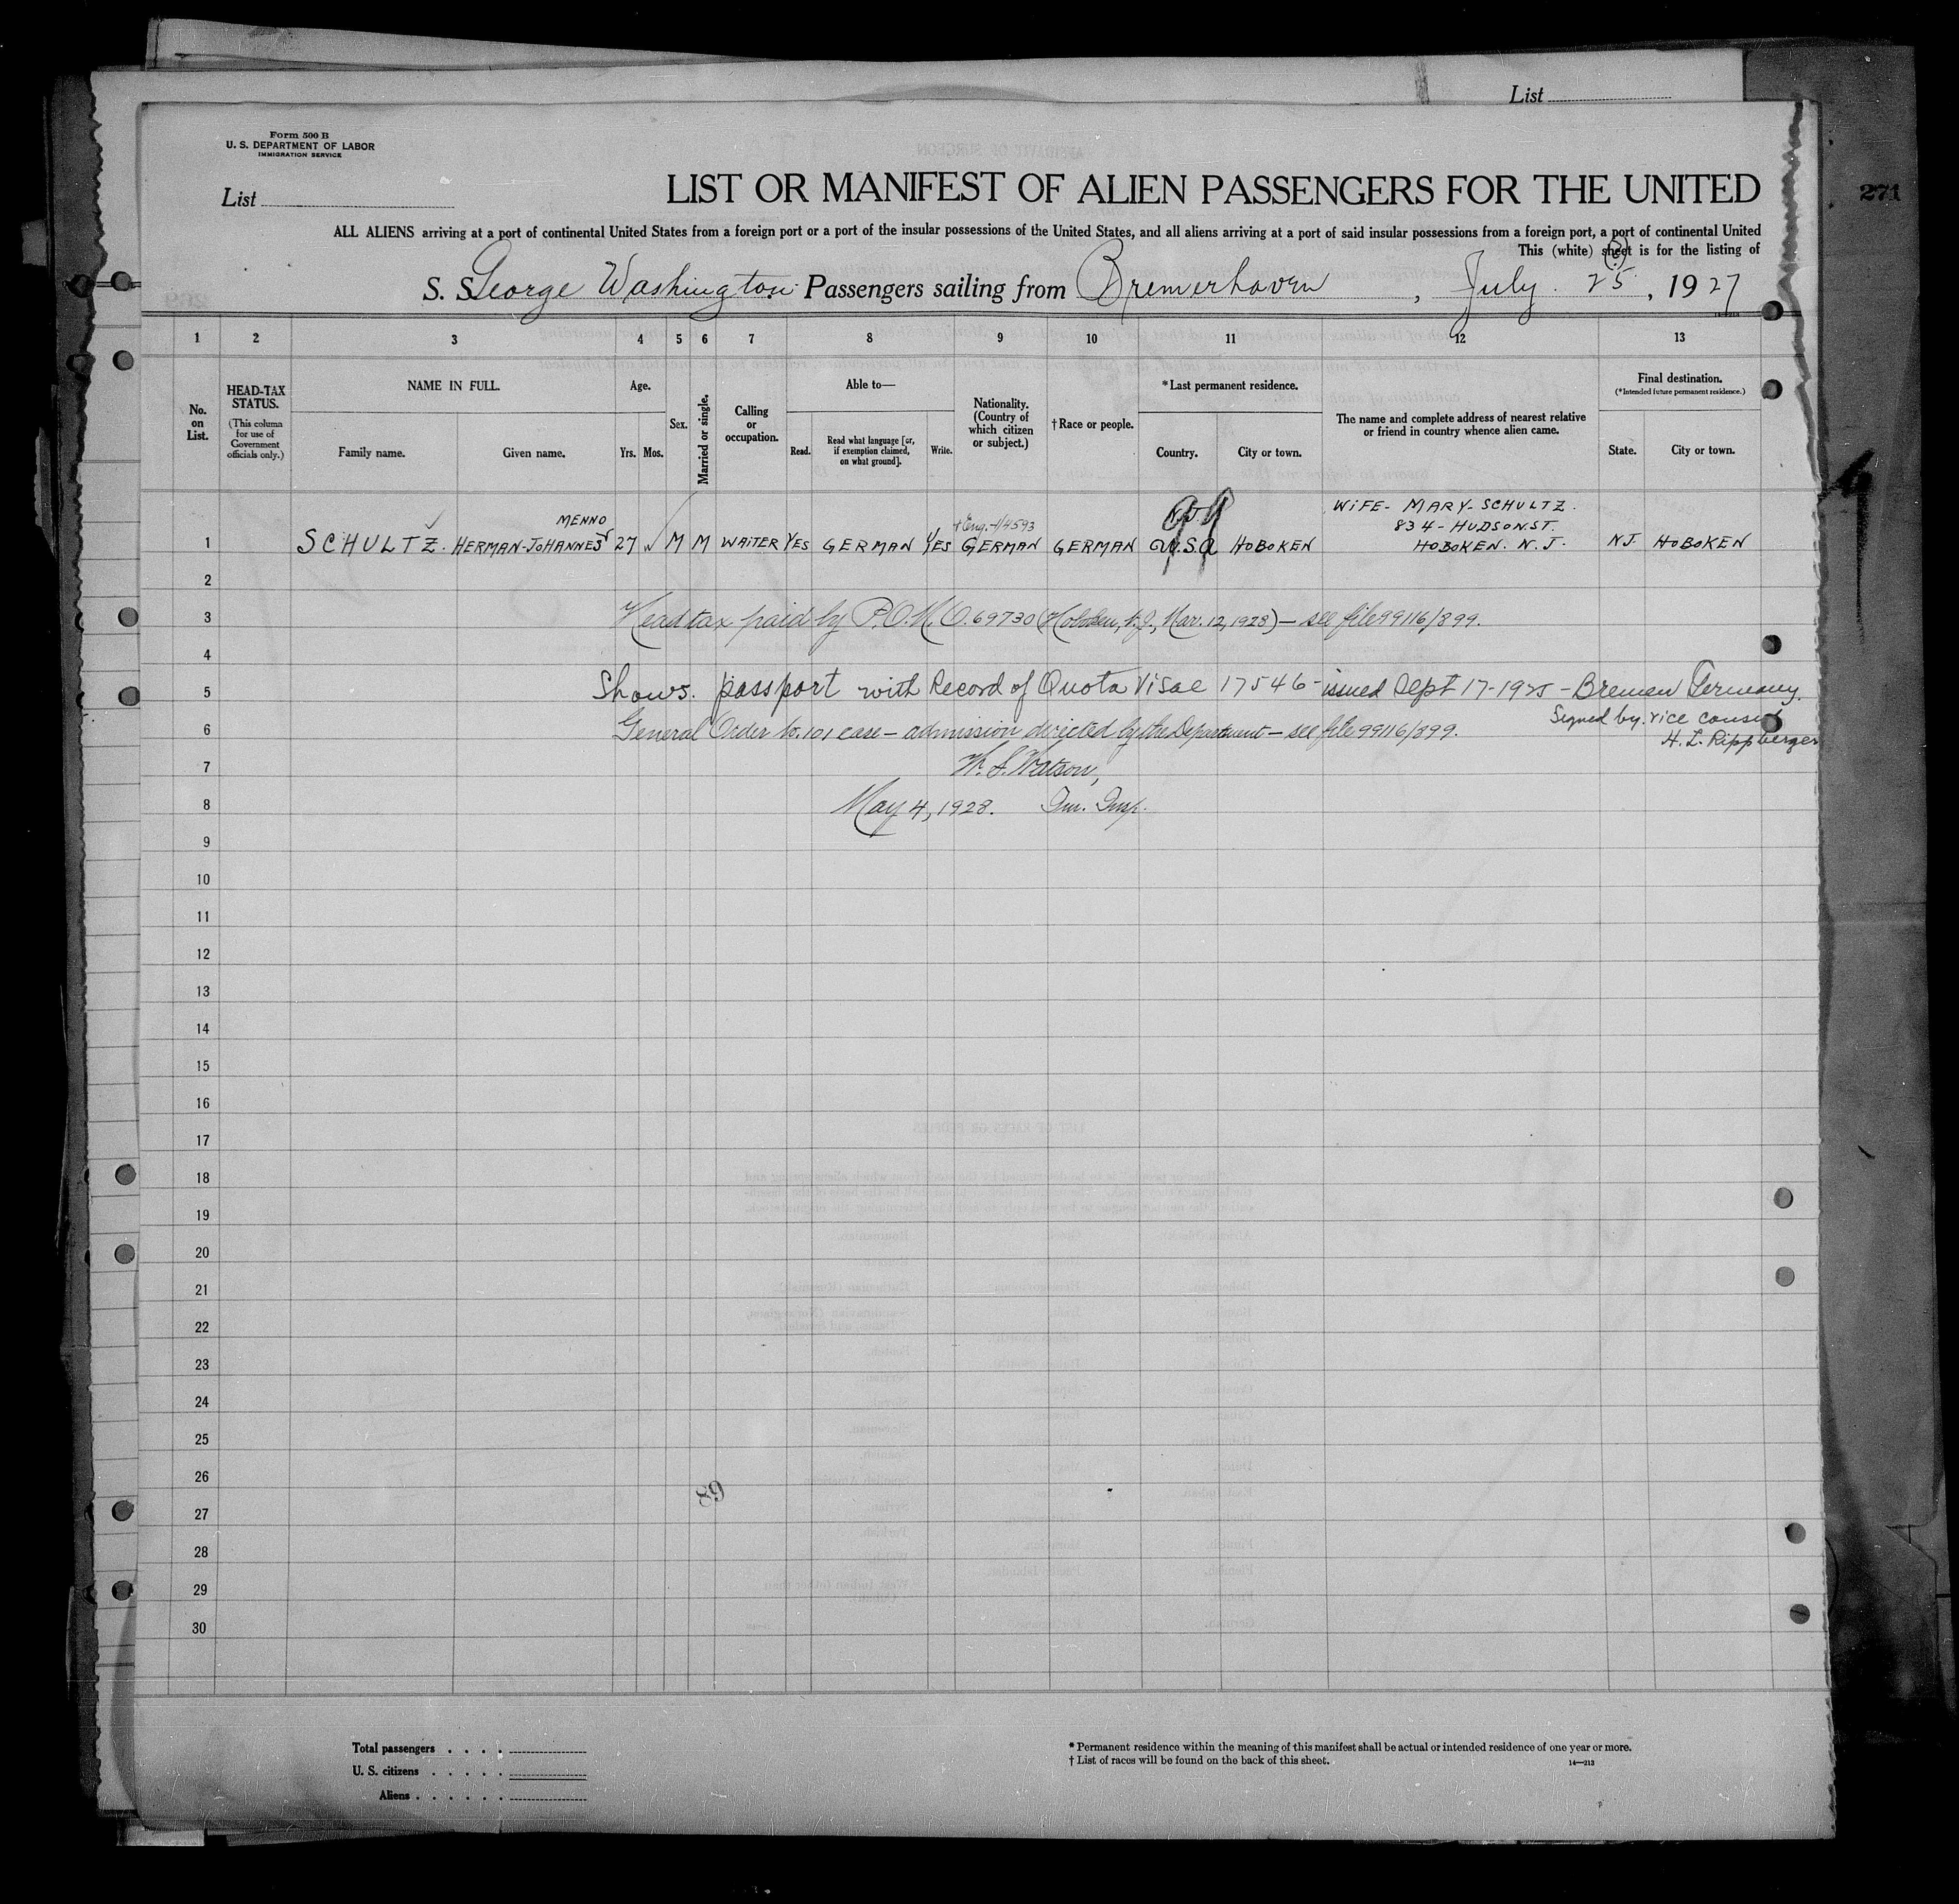 List
271
Form 500 B
U. S. DEPARTMENT OF LABOR
IMMIGRATION SERVICE
List
LIST OR MANIFEST OF ALIEN PASSENGERS FOR THE UNITED
ALL ALIENS arriving at a port of continental United States from a foreign port or a port of the insular possessions of the United States, and all aliens arriving at a port of said insular possessions from a foreign port, a port of continental United
This (white) sheet is for the listing of
(?)
S. S. George Washington Passengers sailing from Bremerhaven, July. 25, 1927
1 2 3 4 5 6 7 8 9 10 11 12 13
No. on List.
HEAD-TAX STATUS.
(This column for use of Government officials only.)
NAME IN FULL.
Family name.
Given name.
Age.
Yrs.
Mos.
Sex.
Married or single.
Calling or occupation.
Able to—
Read.
Read what language [or, if exemption claimed, on what ground].
Write.
Nationality. (Country of which citizen or subject.)
†Race or people.
*Last permanent residence.
Country.
City or town.
The name and complete address of nearest relative or friend in country whence alien came.
Final destination.
(*Intended future permanent residence.)
State.
City or town.
MENNO
+Eng.-1/4593
99
WIFE- MARY-SCHULTZ.
834-HUDSON.ST.
1 SCHULTZ. HERMAN-JOHANNES 27 M M WAITER YES GERMAN YES GERMAN GERMAN U.S.A HOBOKEN HOBOKEN. N.J. NJ. HOBOKEN
2
3 Head tax paid by P.O.M.O. 69730 (Hoboken, N.J., Mar. 12, 1928) — see file 99116/899.
4
5 Shows. passport with Record of Quota Visae 17546 - issued Sept 17-1925 - Bremen Germany.
Signed by. vice consul
H. L. Rippberger
6 General Order No. 101 case — admission directed by the Department — see file 99116/899.
7 W. J. Watson,
8 May 4, 1928. Im. Insp.
9
10
11
12
13
14
15
16
17
18
19
20
21
22
23
24
25
26
89
27
28
29
30
Total passengers . . . .
U. S. citizens . . . . .
Aliens . . . . . .
* Permanent residence within the meaning of this manifest shall be actual or intended residence of one year or more.
† List of races will be found on the back of this sheet.
14—213